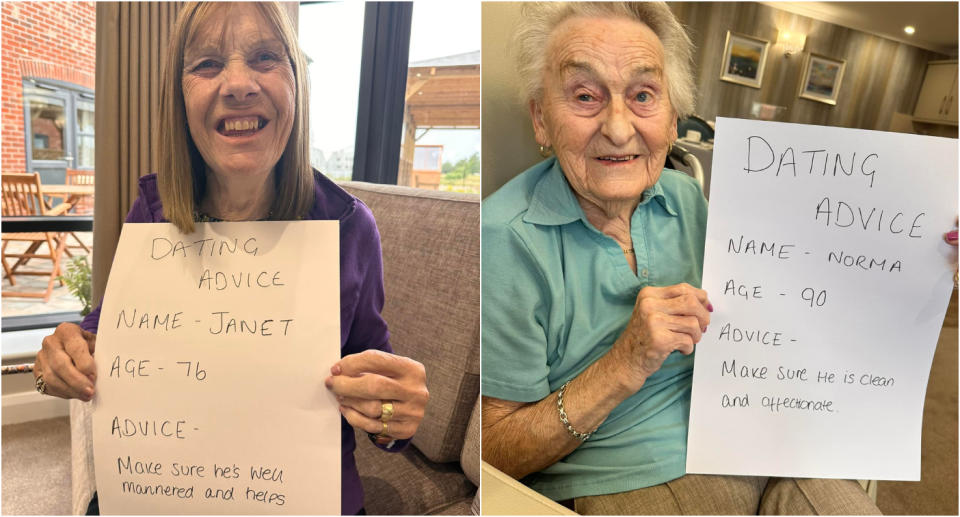 DATING
ADVICE
NAME - JANET
AGE - 76
ADVICE -
Make sure he's well
mannered and helps
DATING
ADVICE
NAME - NORMA
AGE - 90
ADVICE -
Make sure He is clean
and affectionate.